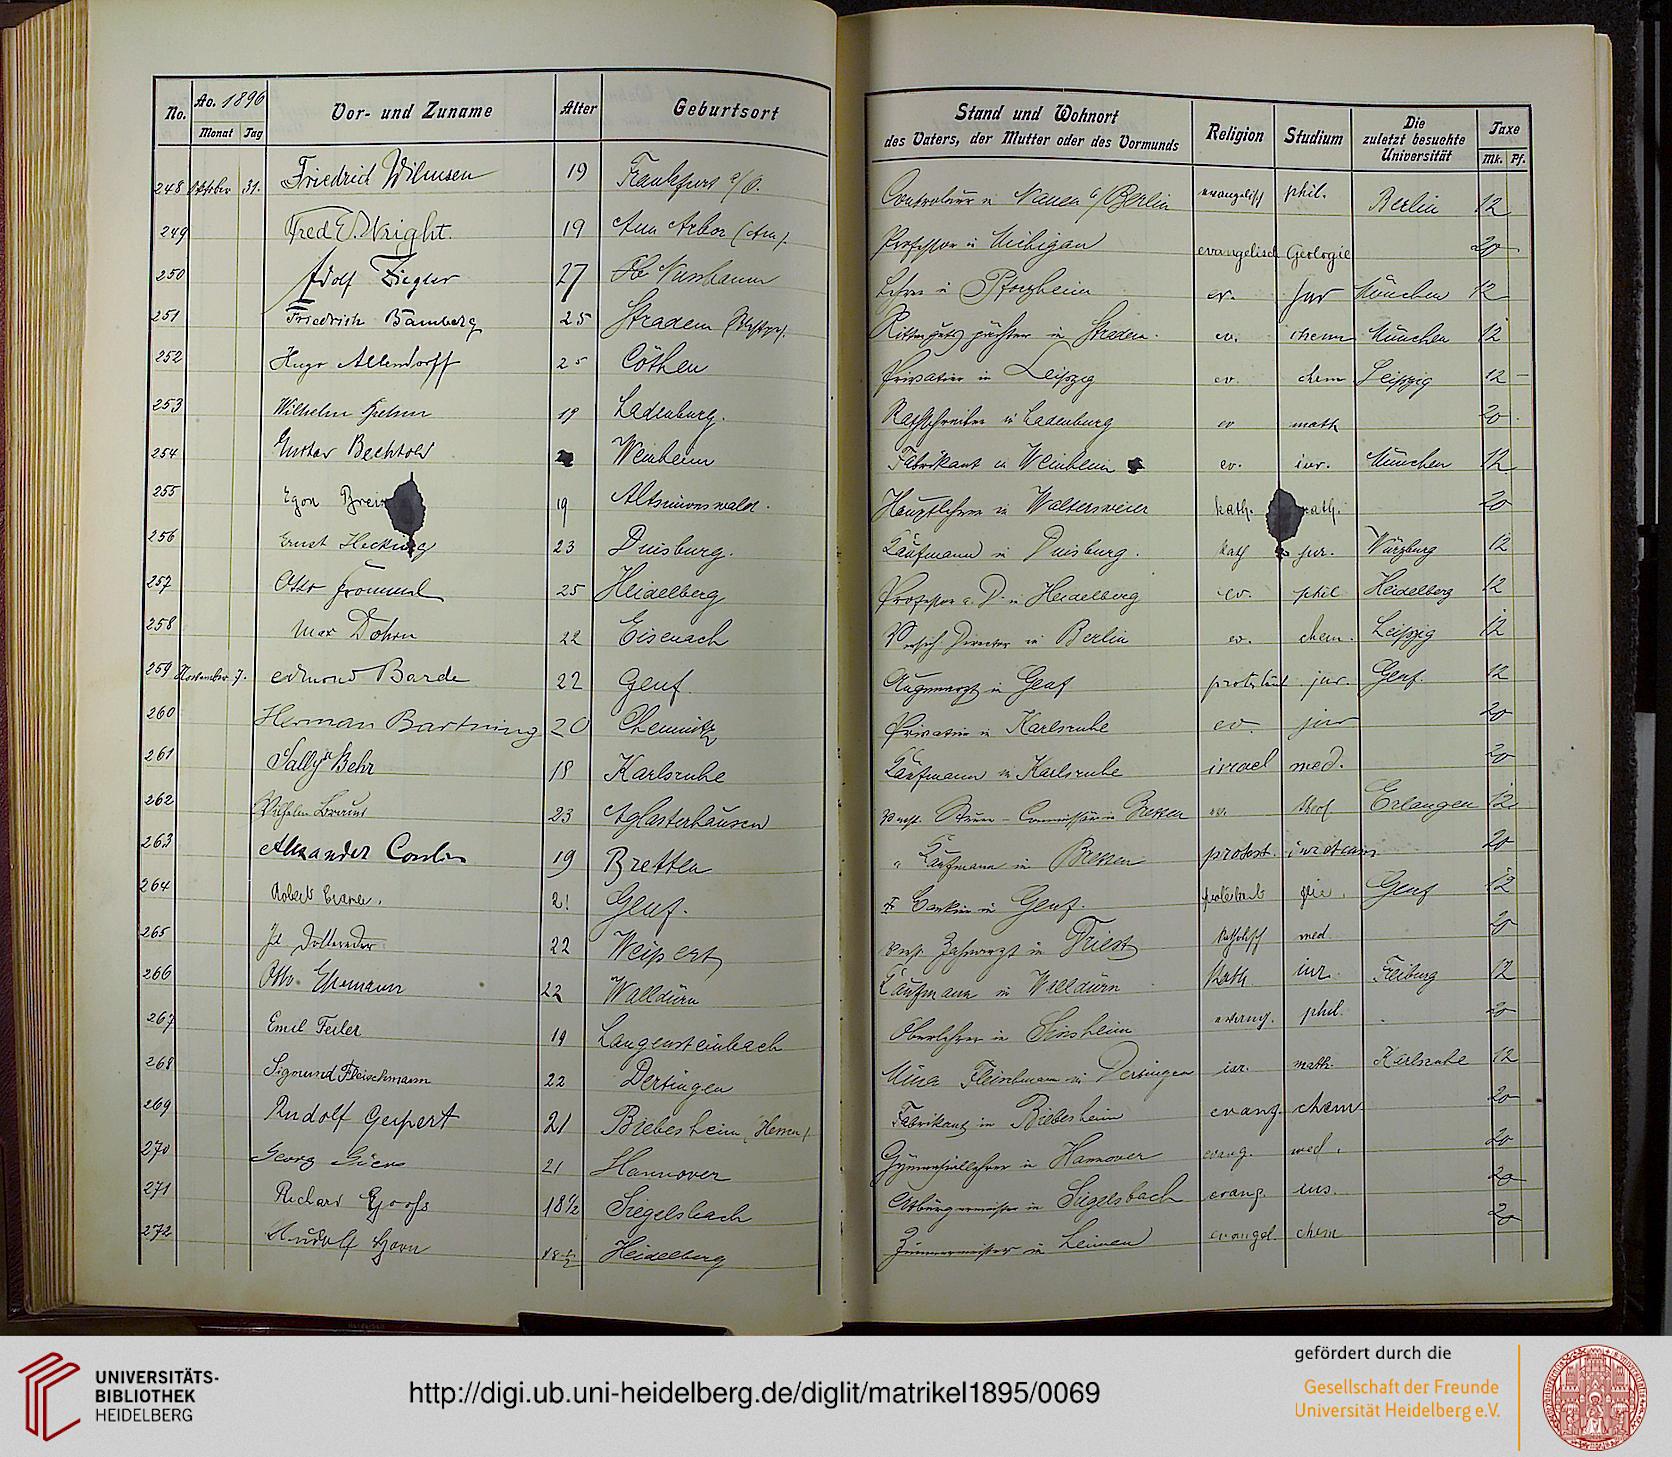 No. Ao. 1896 Vor- und Zuname Alter Geburtsort Stand und Wohnort des Vaters, der Mutter oder des Vormunds Religion Studium Die zuletzt besuchte Universität Taxe
Monat Tag Mk. Pf.
248 Oktober 31. Friedrich Wilmsen 19 Frankfurt a/O. Controleur in Nauen b/Berlin evangelisch phil. Berlin 12
249 Fred E. Wright. 19 Ann Arbor (Am). Professor in Michigan evangelisch Geologie 20
250 Adolf Ziegler 27 Nussbaum Lehrer in Pforzheim ev. jur München 12
251 Friedrich Bamberg 25 Stradem Rittergutspächter in Stradem. ev. chem München 12
252 Hugo Allendorff 25 Cöthen Privatier in Leipzig ev. chem Leipzig 12 –
253 Wilhelm 19 Ladenburg. Rathschreiber in Ladenburg ev math 20.
254 Gustav Bechtold Weinheim Fabrikant in Weinheim ev. iur. München 12
255 Egon 19 Altsimonswald. Hauptlehrer in Waltersweier kath. math. 20
256 Ernst Hecking 23 Duisburg. Kaufmann in Duisburg. kath jur. Würzburg 12
257 Otto Frommel 25 Heidelberg Professor a. D. in Heidelberg ev. phil Heidelberg 12
258 Max Dohrn 22 Eisenach Director in Berlin ev. chem. Leipzig 12
259 November 7. Edmond Barde 22 Genf. Augenarzt in Genf protestant jur. Genf. 12
260 Herman Bartning 20 Chemnitz Privatier in Karlsruhe ev. jur 20
261 Sally Behr 18 Karlsruhe Kaufmann in Karlsruhe israel med. 20
262 Wilhelm 23 Aglasterhausen verst. Steuer-Commissär in Bretten ev. theol. Erlangen 12
263 Alexander 19 Bretten " Kaufmann in Bretten protest. 20
264 Robert 21 Genf. Banquier in Genf. protestant Genf 12
265 22 Weipert verst. Zahnarzt in Triest katholisch med 20
266 Otto Ehemann 22 Walldürn Kaufmann in Walldürn Kath. iur. Freiburg 12
267 Emil Feiler 19 Langensteinbach Oberlehrer in Sinsheim evang. phil. 20
268 Sigmund Fleischmann 22 Dertingen Mina Fleischmann in Dertingen isr. math. Karlsruhe 12
269 Rudolf Geipert 21 Biebesheim (Hessen) Fabrikant in Biebesheim evang. chem 20
270 Georg 21 Hannover Gymnasiallehrer in Hannover evang. med. 20
271 Richard Gooss 18½ Siegelsbach Altbürgermeister in Siegelsbach evang. ius. 20
272 Rudolf Horn 18 ½ Heidelberg Zimmermeister in Leimen evangel. chem 20
UNIVERSITÄTS-
BIBLIOTHEK
HEIDELBERG
http://digi.ub.uni-heidelberg.de/diglit/matrikel1895/0069
gefördert durch die
Gesellschaft der Freunde
Universität Heidelberg e.V.